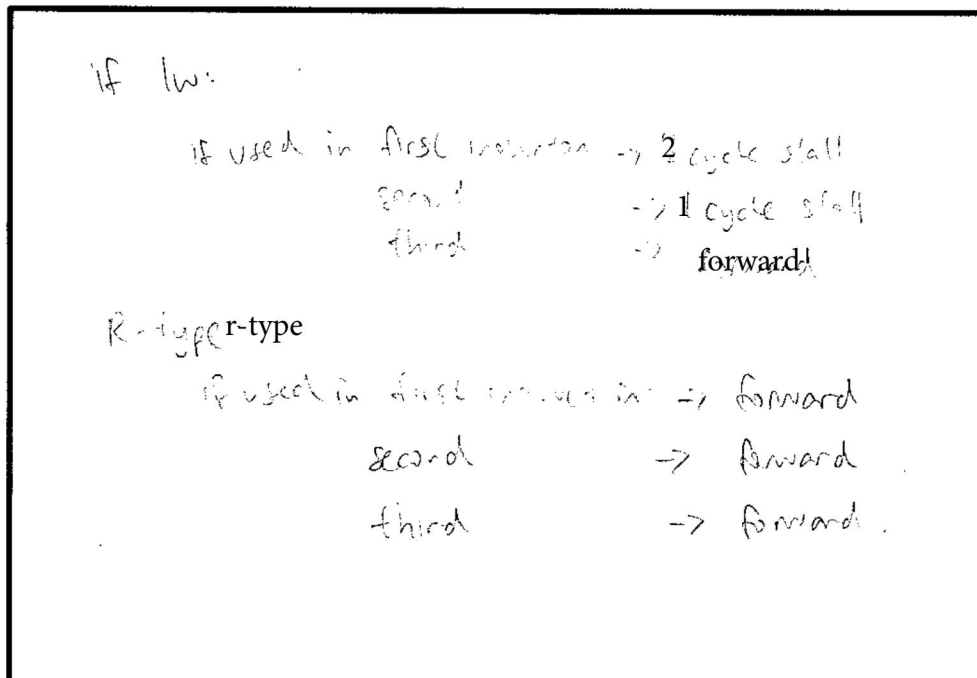 if lw:
if used in first instruction -> 2 cycle stall
second -> 1 cycle stall
third -> forward
R-type r-type
if used in first instruction -> forward
second -> forward
third -> forward